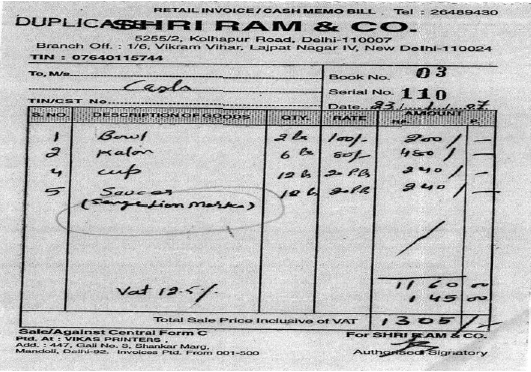 RETAIL INVOICE/CASH MEMO BILL Tel : 26489430
DUPLICATE SHRI RAM & CO.
5255/2, Kolhapur Road, Delhi-110007
Branch Off. : 1/6, Vikram Vihar, Lajpat Nagar IV, New Delhi-110024
TIN : 07640115744
To, M/s. Cash
Book No. 03
Serial No. 110
TIN/CST No.
Date 23/1/07
S. NO. DESCRIPTION OF GOODS QTY. RATE AMOUNT
Rs. P.
1 Bowl 2 100/- 200/ —
2 6 80/- 480/ —
4 cup 12 20 240/ —
5 Saucer 12 20 240/ —
1160 00
Vat 12.5/. 145 00
Total Sale Price Inclusive of VAT 1305/-
Sale/Against Central Form C For SHRI RAM & CO.
Ptd. At : VIKAS PRINTERS,
Add. : 447, Gali No. 8, Shankar Marg,
Mandoli, Delhi-92. Invoices Ptd. From 001-500 Authorised Signatory